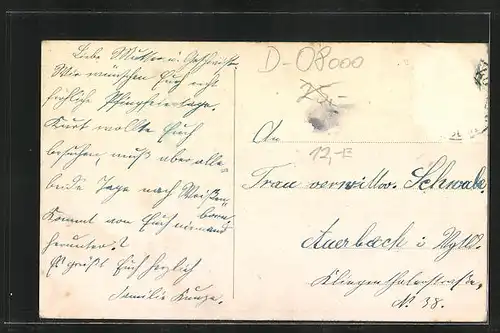 Liebe Mutter u. Geschwister
Wir wünschen Euch recht
fröhliche Pfingstfeiertage.
Kurt wollte Euch
besuchen, muß aber alle
beide Tage nach Weißen-
born.
Kommt von Euch niemand
herunter?
Es grüßt Euch herzlich
Familie Kunze.
D-08000
25,-
An
12,-E
Frau verwittw. Schwabe
Auerbach i. Vgtld.
Klingenthalerstraße,
N. 38.